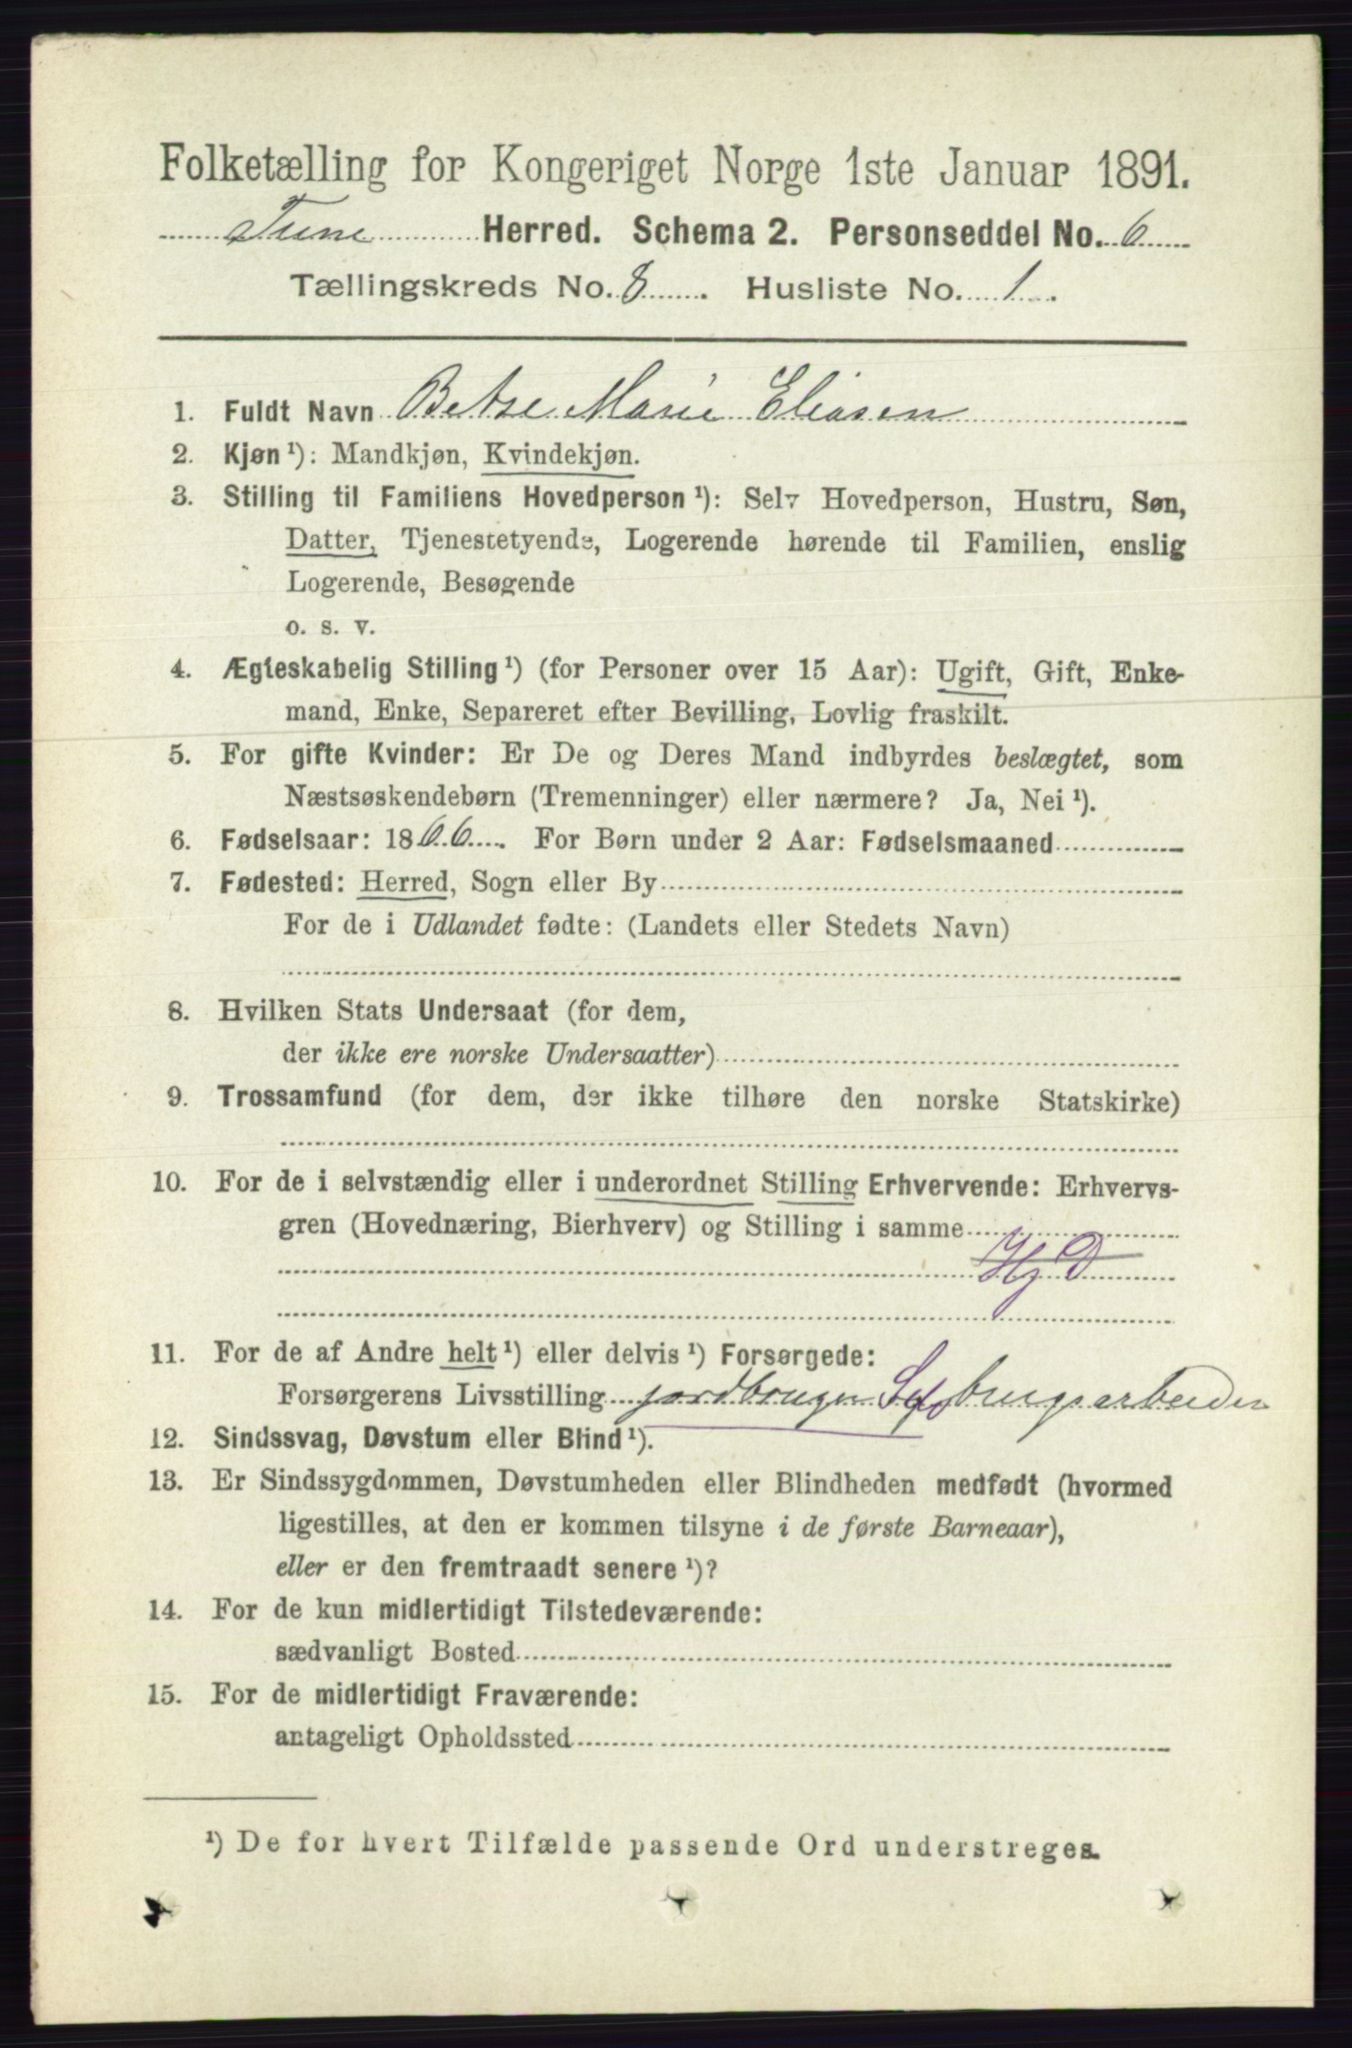 Folketælling for Kongeriget Norge 1ste Januar 1891.
Tune Herred. Schema 2. Personseddel No. 6
Tællingskreds No. 8. Husliste No. 1.
1. Fuldt Navn Betze Marie Eliasen
2. Kjøn ¹): Mandkjøn, Kvindekjøn.
3. Stilling til Familiens Hovedperson ¹): Selv Hovedperson, Hustru, Søn,
Datter, Tjenestetyende, Logerende hørende til Familien, enslig
Logerende, Besøgende
o. s. v.
4. Ægteskabelig Stilling ¹) (for Personer over 15 Aar): Ugift, Gift, Enke-
mand, Enke, Separeret efter Bevilling, Lovlig fraskilt.
5. For gifte Kvinder: Er De og Deres Mand indbyrdes beslægtet, som
Næstsøskendebørn (Tremenninger) eller nærmere? Ja, Nei ¹).
6. Fødselsaar: 1866. For Børn under 2 Aar: Fødselsmaaned
7. Fødested: Herred, Sogn eller By
For de i Udlandet fødte: (Landets eller Stedets Navn)
8. Hvilken Stats Undersaat (for dem,
der ikke ere norske Undersaatter)
9. Trossamfund (for dem, der ikke tilhøre den norske Statskirke)
10. For de i selvstændig eller i underordnet Stilling Erhvervende: Erhvervs-
gren (Hovednæring, Bierhverv) og Stilling i samme
Hj D
11. For de af Andre helt ¹) eller delvis ¹) Forsørgede:
Forsørgerens Livsstilling jordbruger brugsarbeider
12. Sindssvag, Døvstum eller Blind ¹).
13. Er Sindssygdommen, Døvstumheden eller Blindheden medfødt (hvormed
ligestilles, at den er kommen tilsyne i de første Barneaar),
eller er den fremtraadt senere ¹)?
14. For de kun midlertidigt Tilstedeværende:
sædvanligt Bosted
15. For de midlertidigt Fraværende:
antageligt Opholdssted
¹) De for hvert Tilfælde passende Ord understreges.